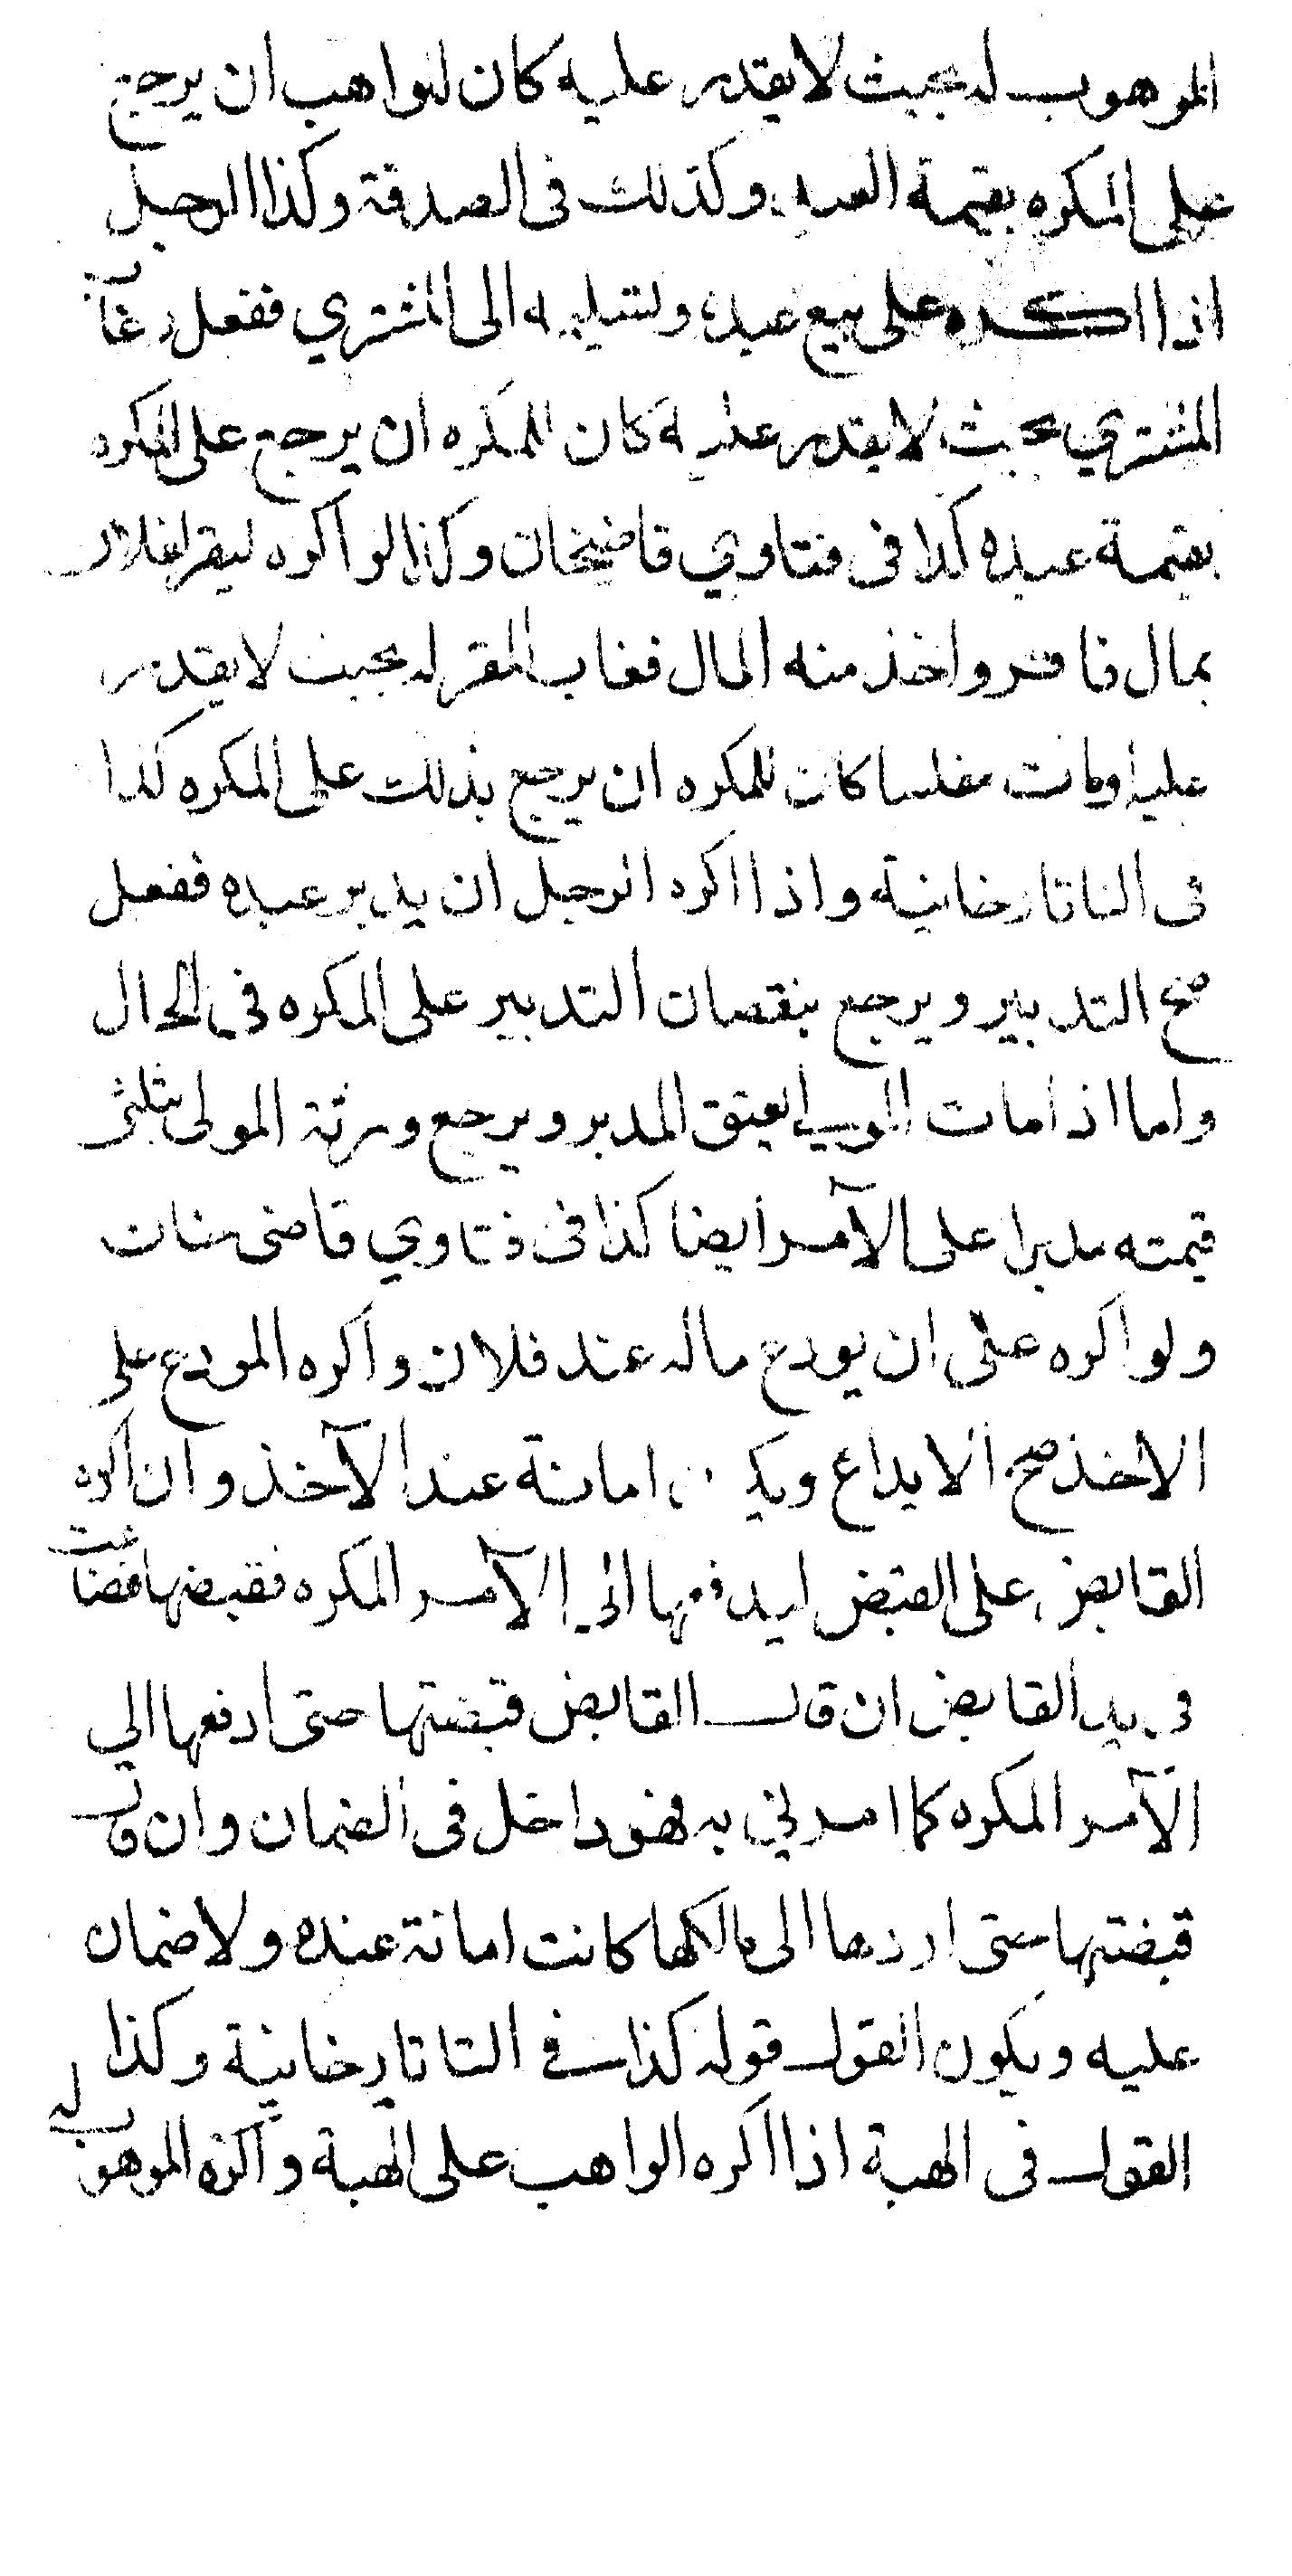 الموهوب له بحيث لا يقدر عليه كان للواهب ان يرجع
على المكره بقيمة العبد وكذلك فى الصدقة وكذا الرجل
اذا اكره على بيع عبده وتسليمه الى المشتري ففعل وغاب
المشتري بحيث لا يقدر عليه كان للمكره ان يرجع على المكره
بقيمة عبده كذا فى فتاوي قاضيخان وكذا لو اكره ليقر لفلان
بمال فاقر واخذ منه المال فغاب المقر له بحيث لا يقدر
عليه او مات مفلسا كان للمكره ان يرجع بذلك على المكره كذا
فى التاتارخانية واذا اكره الرجل ان يدبر عبده ففعل
صح التدبير ويرجع بنقصان التدبير على المكره فى الحال
واما اذا مات المولى يعتق المدبر ويرجع ورثة المولى بثلثى
قيمته مدبرا على الآمر ايضا كذا فى فتاوي قاضى خان
ولو اكره على ان يودع ماله عند فلان واكره المودع على
الاخذ صح الايداع ويكون امانة عند الآخذ وان اكره
القابض على القبض ليدفعها الى الآمر المكره فقبضها فضاعت
فى يد القابض ان قال القابض قبضتها حتى ادفعها الي
الآمر المكره كما امرني به فهو داخل فى الضمان وان قال
قبضتها حتى اردها الى مالكها كانت امانة عنده ولا ضمان
عليه ويكون القول قوله كذا فى التاتارخانية وكذا
القول فى الهبة اذا اكره الواهب على الهبة واكره الموهوب له